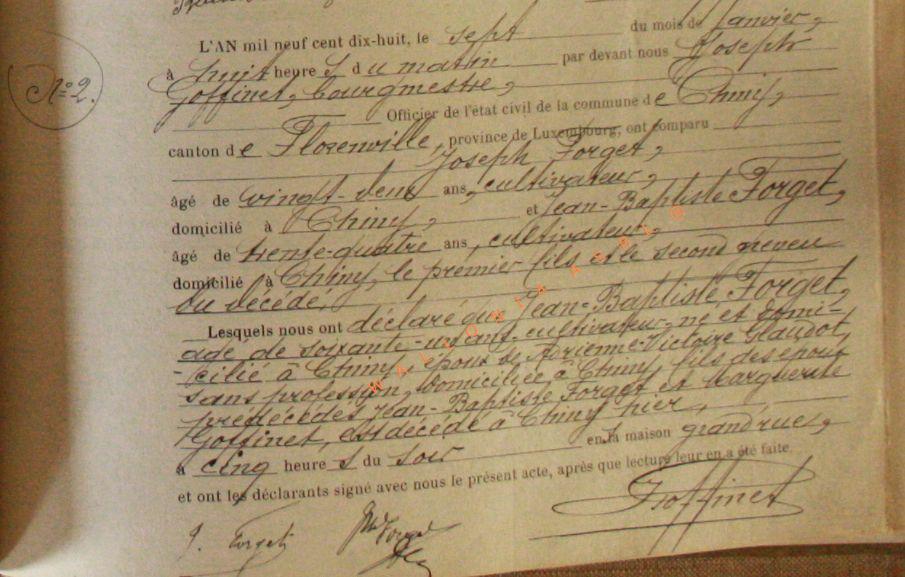 N° 2.
L'AN mil neuf cent dix-huit, le sept du mois de Janvier,
à huit heures du matin par devant nous Joseph
Goffinet, bourgmestre,
Officier de l'état civil de la commune de Chiny,
canton de Florenville, province de Luxembourg, ont comparu
Joseph Forget,
âgé de vingt-deux ans, cultivateur,
domicilié à Chiny, et Jean-Baptiste Forget,
âgé de trente-quatre ans, cultivateur,
domicilié à Chiny, le premier fils et le second neveu
du décédé,
Lesquels nous ont déclaré que Jean-Baptiste Forget,
âgé de soixante-un ans, cultivateur, né et domi-
cilié à Chiny, époux de Adrienne-Victoire Glaudot,
sans profession, domiciliée à Chiny, fils des époux
prédécédés Jean-Baptiste Forget et Marguerite
Goffinet, est décédé à Chiny hier,
à cinq heures du soir en sa maison grand'rue,
et ont les déclarants signé avec nous le présent acte, après que lecture leur en a été faite.
J. Forget Goffinet